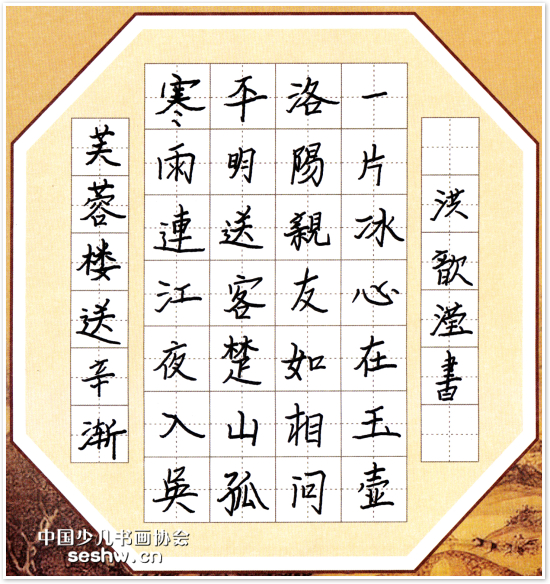 芙蓉楼送辛渐
寒雨連江夜入吳
平明送客楚山孤
洛陽親友如相问
一片冰心在玉壶
洪歆滢書
中国少儿书画协会
seshw.cn